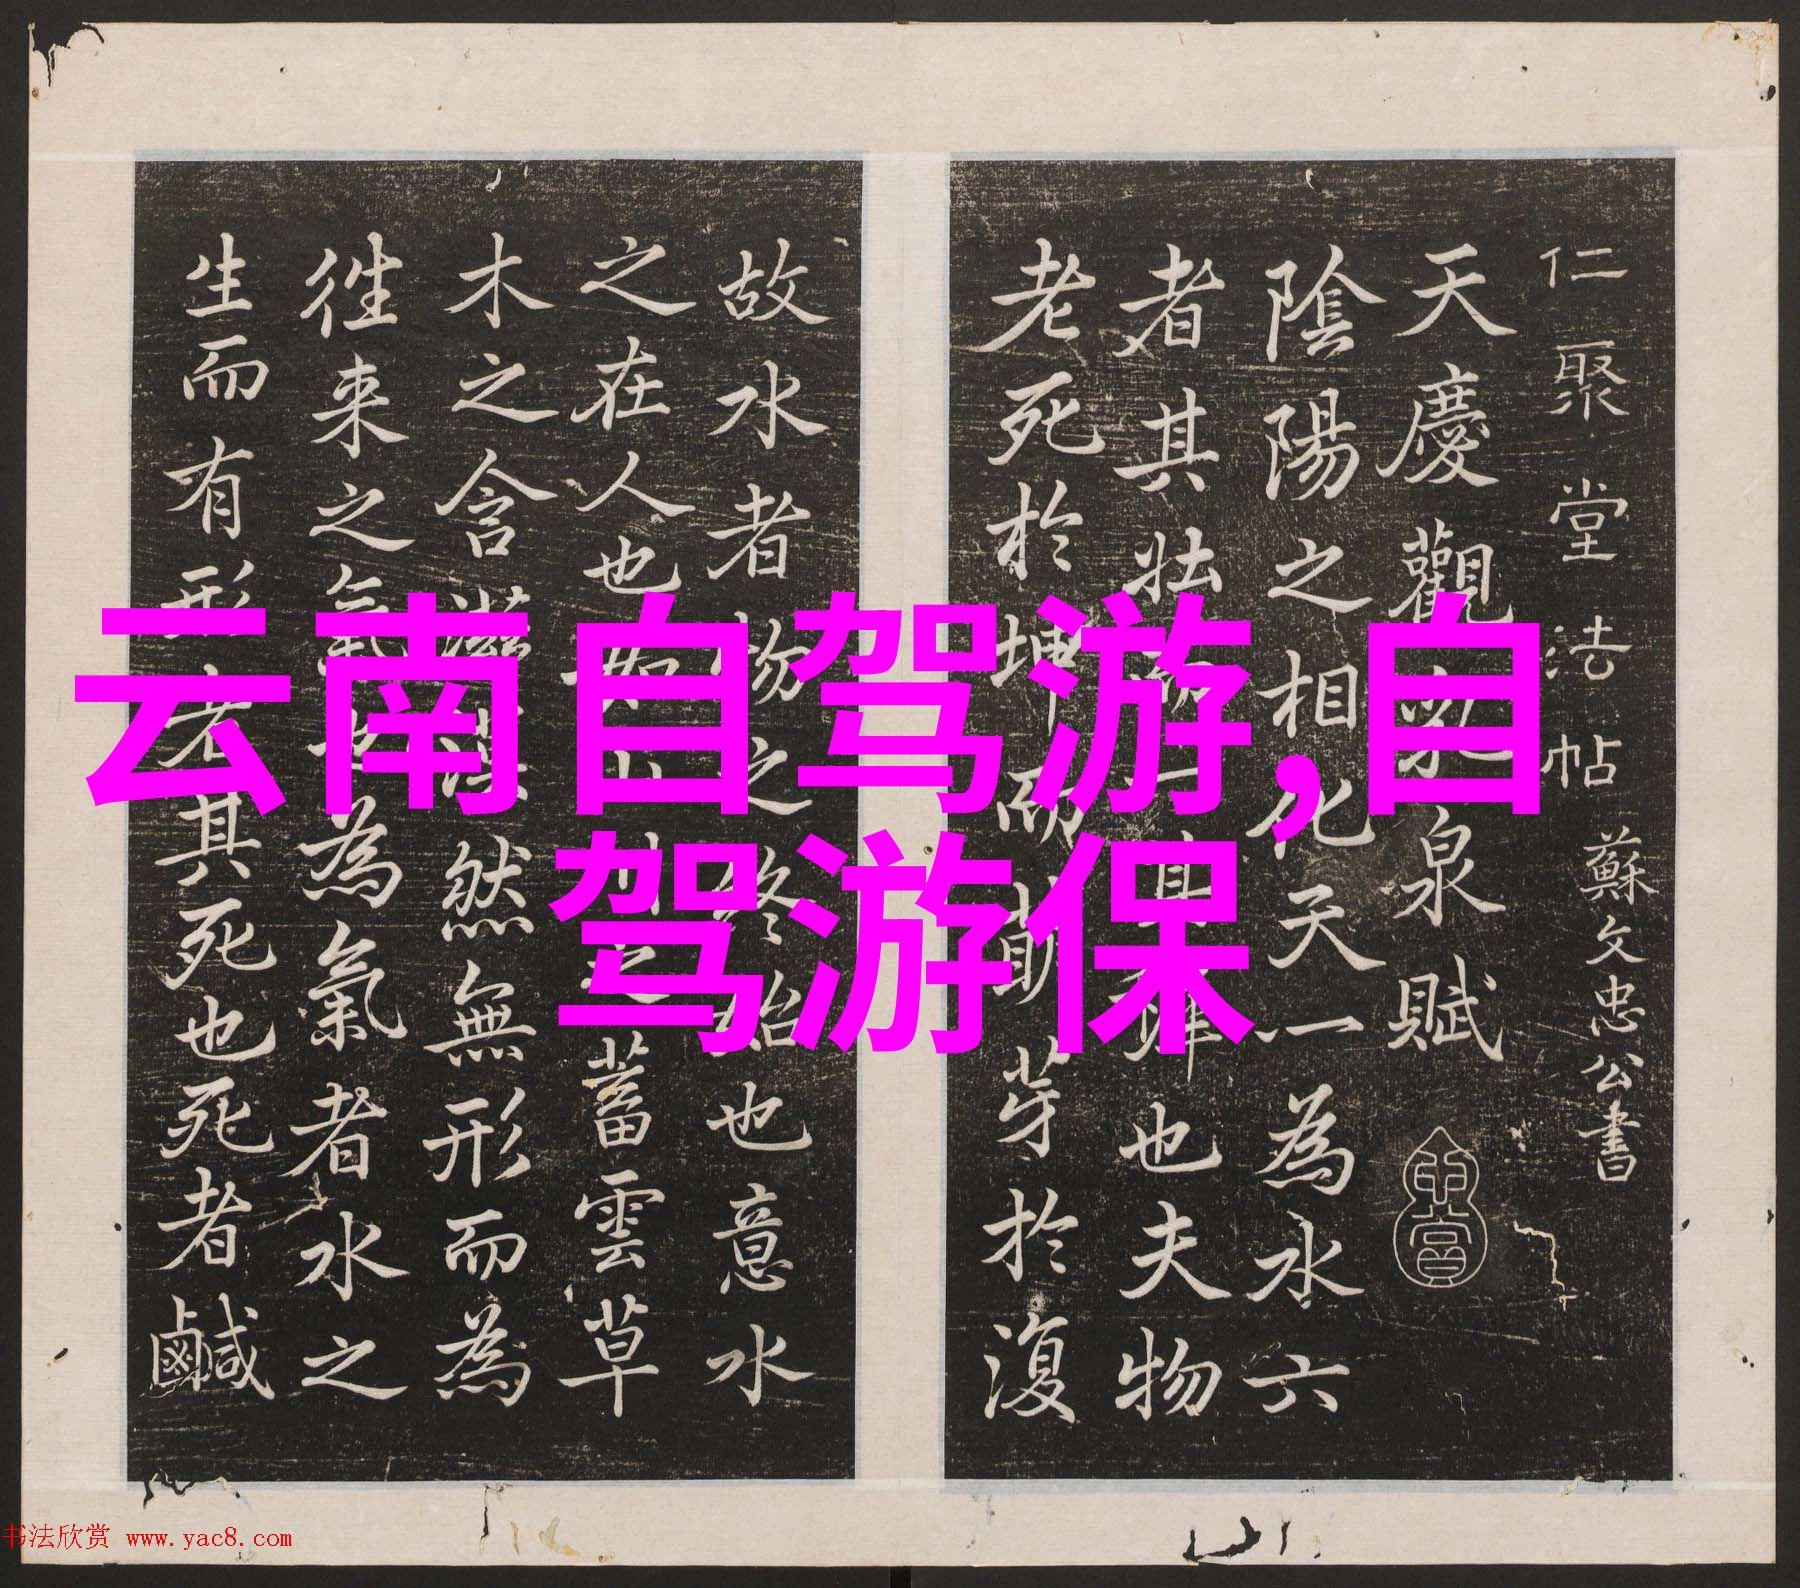 云南自驾游,自
驾游保
仁聚堂法帖 蘇文忠公書
天慶觀乳泉賦
陰陽之相化天一為水六
者其壯而一者其稚也夫物
老死於坤而萌芽於復
故水者物之終始也意水
之在人也如山川之蓄雲草
木之含滋漠然無形而為
往來之氣也為氣者水之
生而有形者其死也死者鹹
书法欣赏 www.yac8.com